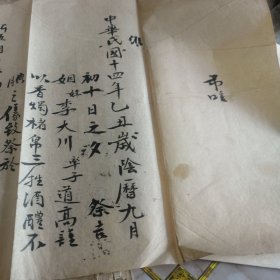 吊唁
維
中華民國十四年乙丑歲陰曆九月
初十日之夕 祭言
姻妹李大川率子道高謹
以香燭楮帛三牲酒醴不
腆之儀致祭於